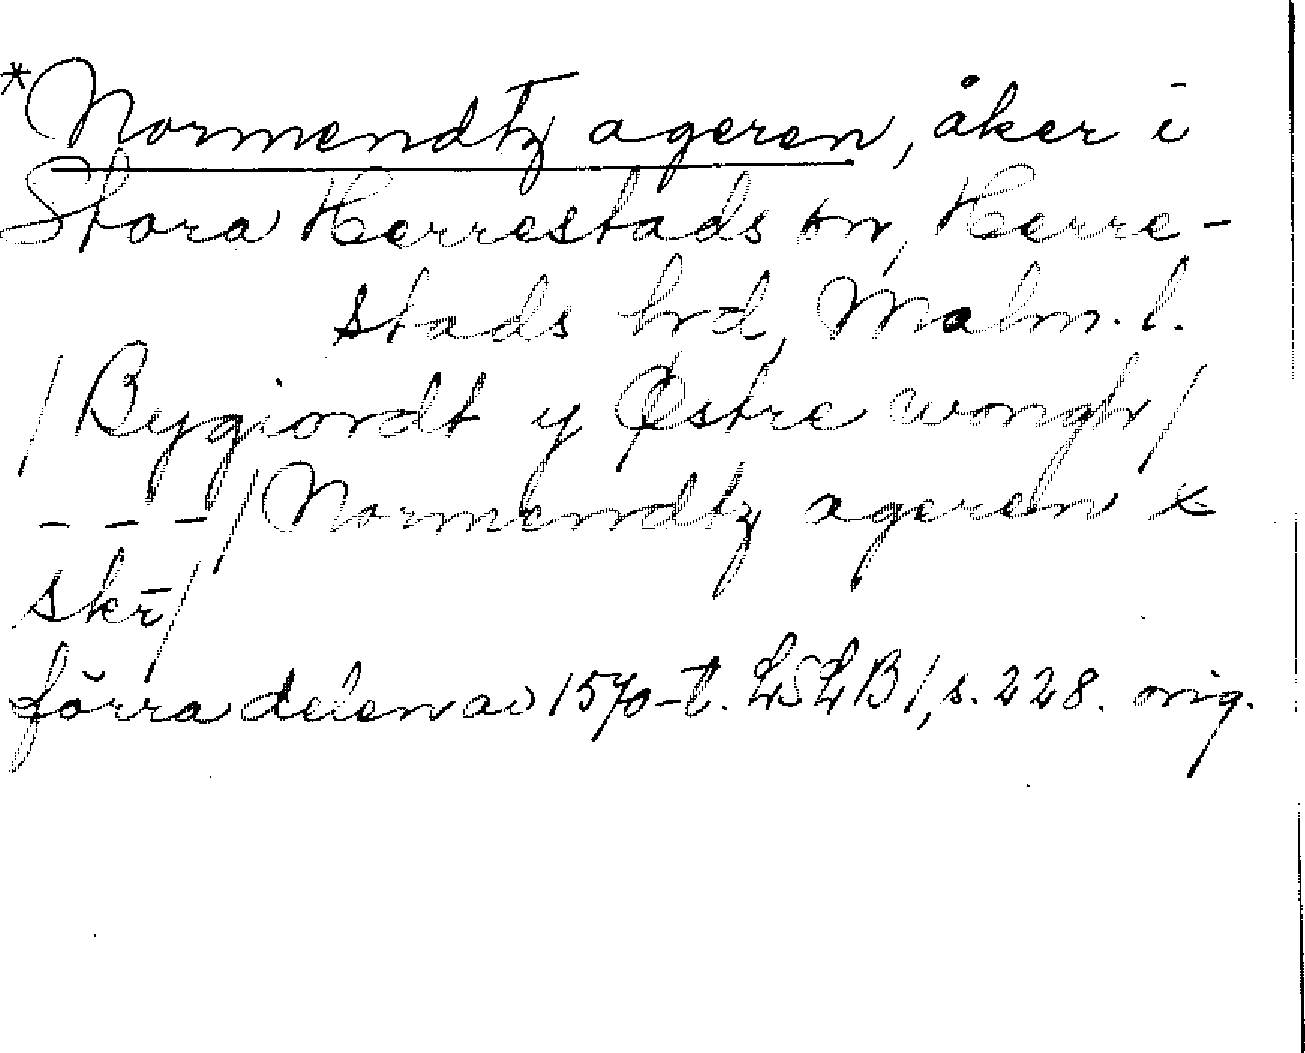 *Normendtz ageren, åker i
Stora Herrestads sn, Herre-
stads hd, Malm. l.
/Bygiordt y Østre wongh/
- - -/Normendtz ageren
skē/
förra delen av 1570-t. LSLB 1, s. 228. orig.